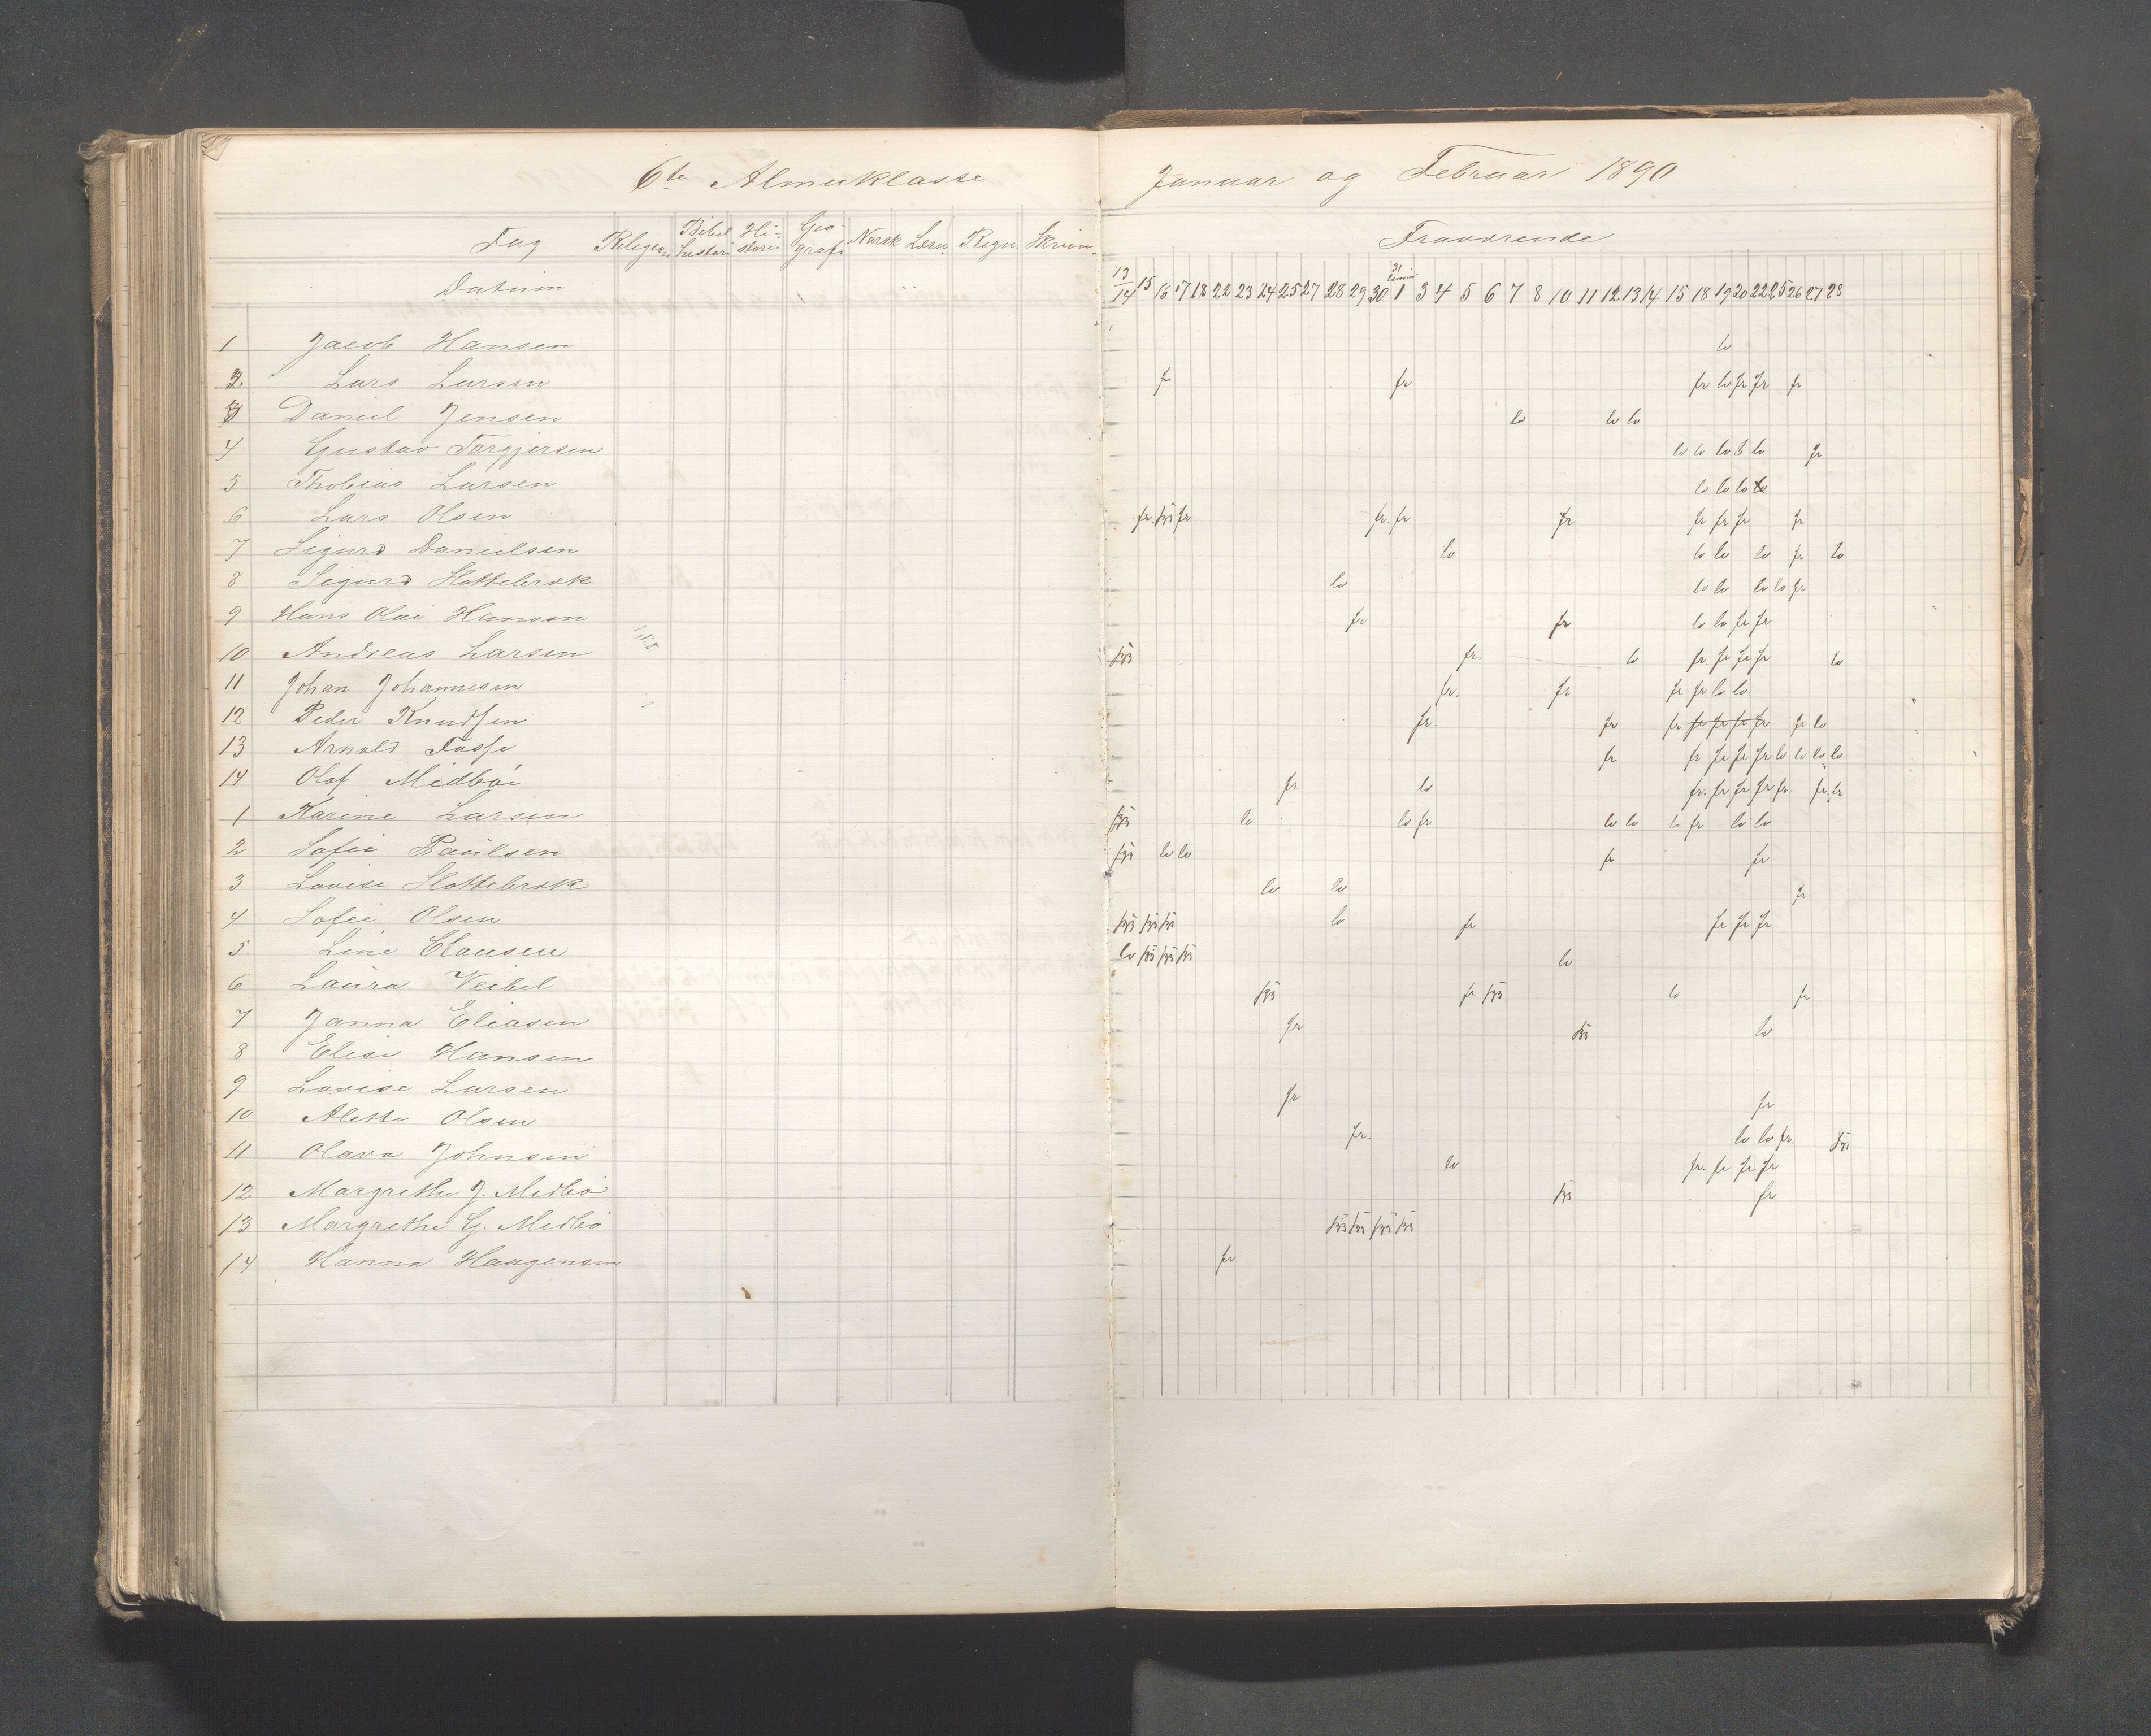 6te Almueklasse
Januar og Februar 1890
Fag Religion Bibelhistorie Historie Geografi Norsk Læsn. Regn. Skrivn.
Fraværende
Datum
13/14 15 16 17 18 22 23 24 25 27 28 29 30 31 1 3 4 5 6 7 8 10 11 12 13 14 15 18 19 20 22 25 26 27 28
1 Jacob Hansen lo
2 Lars Larsen fr fr fr lo fr fr fr
3 Daniel Jensen lo lo lo
4 Gustav Torgjersen lo lo lo lo lo fr
5 Thobias Larsen lo lo lo lo
6 Lars Olsen fr. syg fr fr. fr fr fr fr fr fr
7 Sigurd Danielsen lo lo lo lo fr lo
8 Sigurd Slottebrøk lo lo lo lo lo fr
9 Hans Olai Hansen fr fr lo lo fr fr
10 Andreas Larsen syg fr. lo fr. fr fr fr lo
11 Johan Johannesen fr. fr fr fr lo lo
12 Peder Knudsen fr fr fr fr fr fr fr fr lo
13 Arnold Fasse fr fr fr fr fr lo lo lo lo
14 Olaf Midböe fr lo fr. fr fr fr fr. fr. fr
1 Karine Larsen syg lo lo fr lo lo lo fr lo lo
2 Sofie Paulsen syg lo lo fr fr
3 Lovise Slottebrøk lo lo fr
4 Sofie Olsen syg syg syg lo fr fr fr fr
5 Line Clausen lo syg syg syg lo
6 Laura Veibel syg fr syg lo fr
7 Janna Eliasen fr syg lo
8 Elise Hansen
9 Lovise Larsen fr fr
10 Alette Olsen fr. lo lo fr. syg
11 Olava Johnsen lo fr. fr fr fr
12 Margrethe J. Medbö syg fr
13 Margrethe G. Medbö syg syg syg syg
14 Hanna Haagensen fr